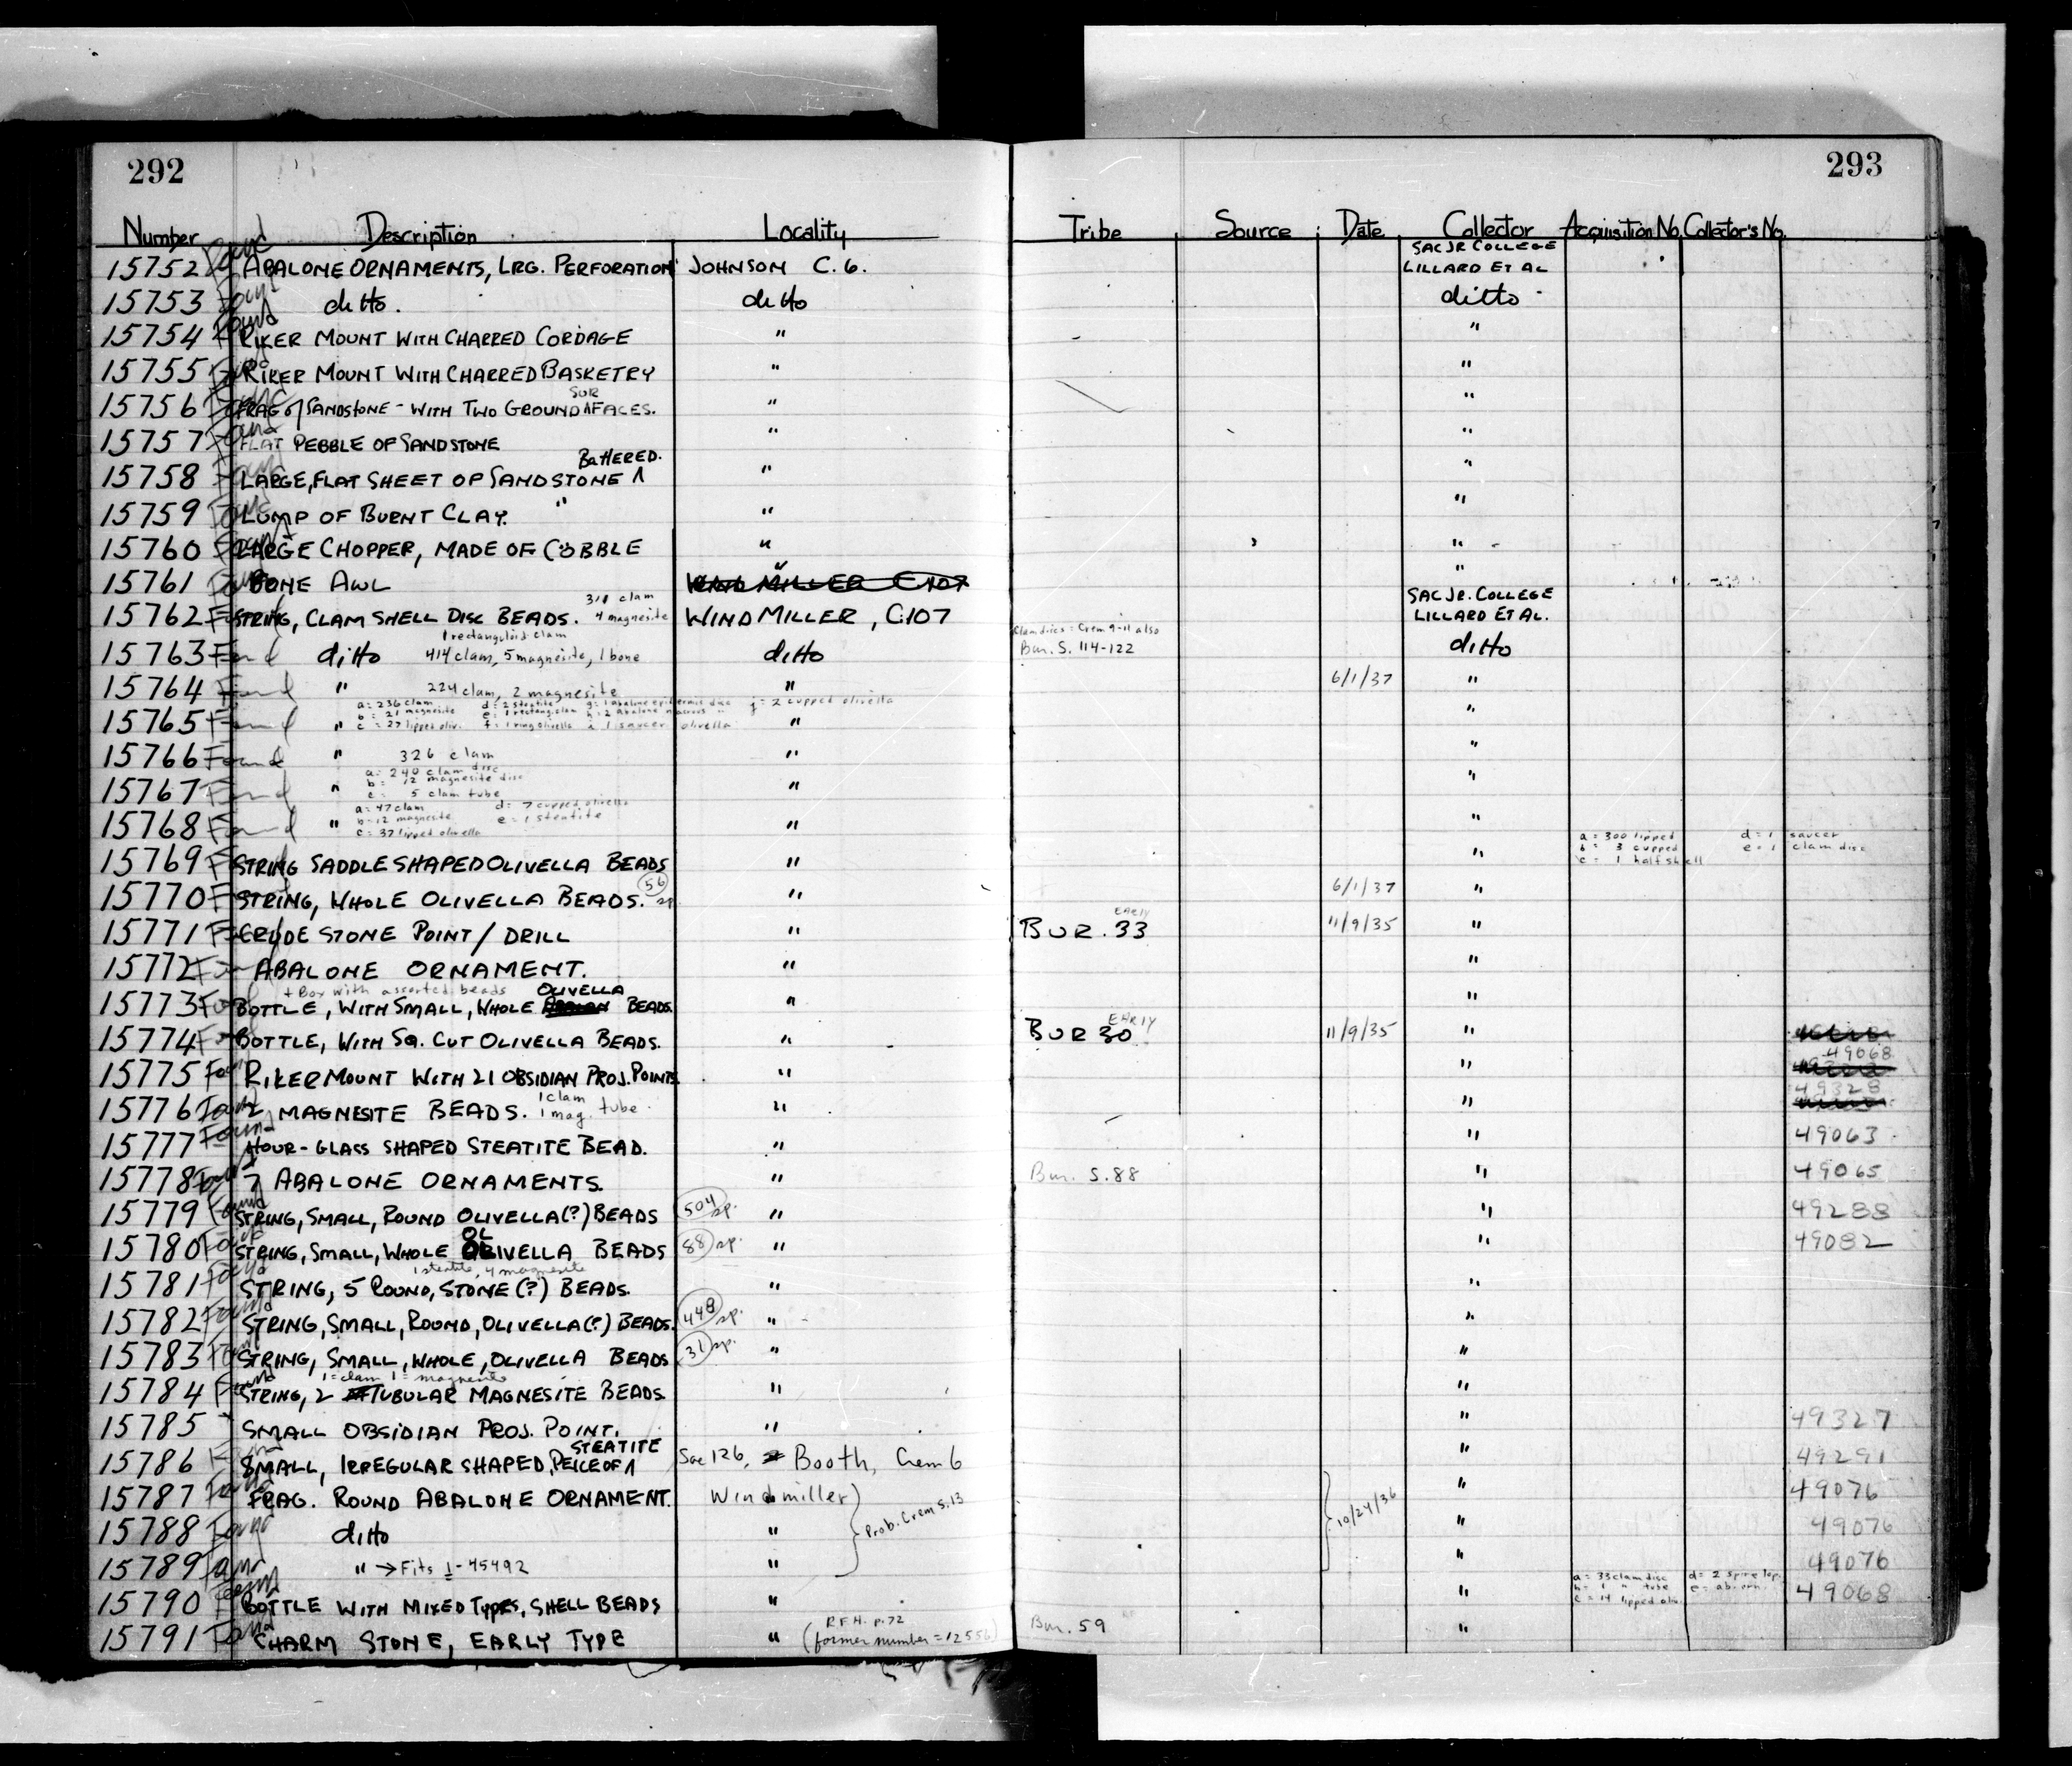 292
293
Number Description Locality Tribe Source Date Collector Acquisition No. Collector's No.
15752 Found ABALONE ORNAMENTS, LRG. PERFORATION JOHNSON C. 6. SAC JR COLLEGE
LILLARD ET AL
15753 Found ditto. ditto ditto
15754 Found RIKER MOUNT WITH CHARRED CORDAGE " "
15755 RIKER MOUNT WITH CHARRED BASKETRY " "
15756 FRAG of SANDSTONE - WITH TWO GROUND SUR FACES. " "
15757 FLAT PEBBLE OF SANDSTONE " "
15758 LARGE, FLAT SHEET OF SANDSTONE BATTERED. " "
15759 LUMP OF BURNT CLAY. " " "
15760 LARGE CHOPPER, MADE OF COBBLE " "
15761 BONE AWL " "
15762 STRING, CLAM SHELL DISC BEADS. clam 4 magnesite WINDMILLER, C.107 SAC JR. COLLEGE
LILLARD ET AL.
1 rectanguloid clam
15763 Found ditto 414 clam, 5 magnesite, 1 bone ditto Clam discs = Crem 9-11 also
Bur. S. 114-122 ditto
15764 Found " 224 clam, 2 magnesite " 6/1/37 "
a = 236 clam d = 2 steatite g = 1 abalone epidermis disc j = 2 cupped olivella
b = 21 magnesite e = 1 rectang. clam h = 2 abalone
15765 Found " c = 27 lipped oliv. f = 1 ring olivella i 1 saucer olivella " "
15766 Found " 326 clam " "
a = 240 clam disc
b = 12 magnesite disc
15767 Found " c = 5 clam tube " "
a = 47 clam d = 7 cupped olivella
15768 Found " b = 12 magnesite e = 1 steatite " "
c = 37 lipped olivella
a = 300 lipped d = 1 saucer
b = 3 cupped e = 1 clam disc
c = 1 half shell
15769 STRING SADDLE SHAPED OLIVELLA BEADS " "
15770 STRING, WHOLE OLIVELLA BEADS. 56 sp " 6/1/37 "
15771 CRUDE STONE POINT/DRILL " BUR. 33 EARLY 11/9/35 "
15772 Found ABALONE ORNAMENT. " "
+ Box with assorted beads
15773 BOTTLE, WITH SMALL, WHOLE OLIVELLA BEADS. " "
15774 BOTTLE, WITH SQ. CUT OLIVELLA BEADS. " BUR 30 EARLY 11/9/35 "
15775 RIKER MOUNT WITH 21 OBSIDIAN PROJ. POINTS " " 49068
15776 2 MAGNESITE BEADS. 1 clam 1 mag. tube " " 49328
15777 Found HOUR-GLASS SHAPED STEATITE BEAD. " " 49063
15778 Found 7 ABALONE ORNAMENTS. " Bur. S. 88 " 49065
15779 Found STRING, SMALL, ROUND OLIVELLA (?) BEADS 504 sp. " " 49288
15780 Found STRING, SMALL, WHOLE OLIVELLA BEADS 88 sp. " " 49082
1 steatite, 4 magnesite
15781 Found STRING, 5 ROUND, STONE (?) BEADS. " "
15782 Found STRING, SMALL, ROUND, OLIVELLA (?) BEADS. 448 sp. " "
15783 STRING, SMALL, WHOLE, OLIVELLA BEADS 31 sp. " "
1 = clam 1 = magnesite
15784 Found STRING, 2 TUBULAR MAGNESITE BEADS " "
15785 SMALL OBSIDIAN PROJ. POINT. " " 49327
15786 SMALL, IRREGULAR SHAPED, PEICE OF STEATITE Sac 126, Booth, Crem 6 " 49291
15787 FRAG. ROUND ABALONE ORNAMENT. Windmiller Prob. Crem S. 13 10/24/36 " 49076
15788 Found ditto " " 49076
15789 " → Fits 1-45492 " " 49076
a = 33 clam disc d = 2 spire lop.
b = 1 " tube e = ab. orn.
c = 14 lipped oliv.
15790 BOTTLE WITH MIXED TYPES, SHELL BEADS " " 49068
15791 CHARM STONE, EARLY TYPE " R.F.H. p. 72
(former number = 12556) Bur. 59 "